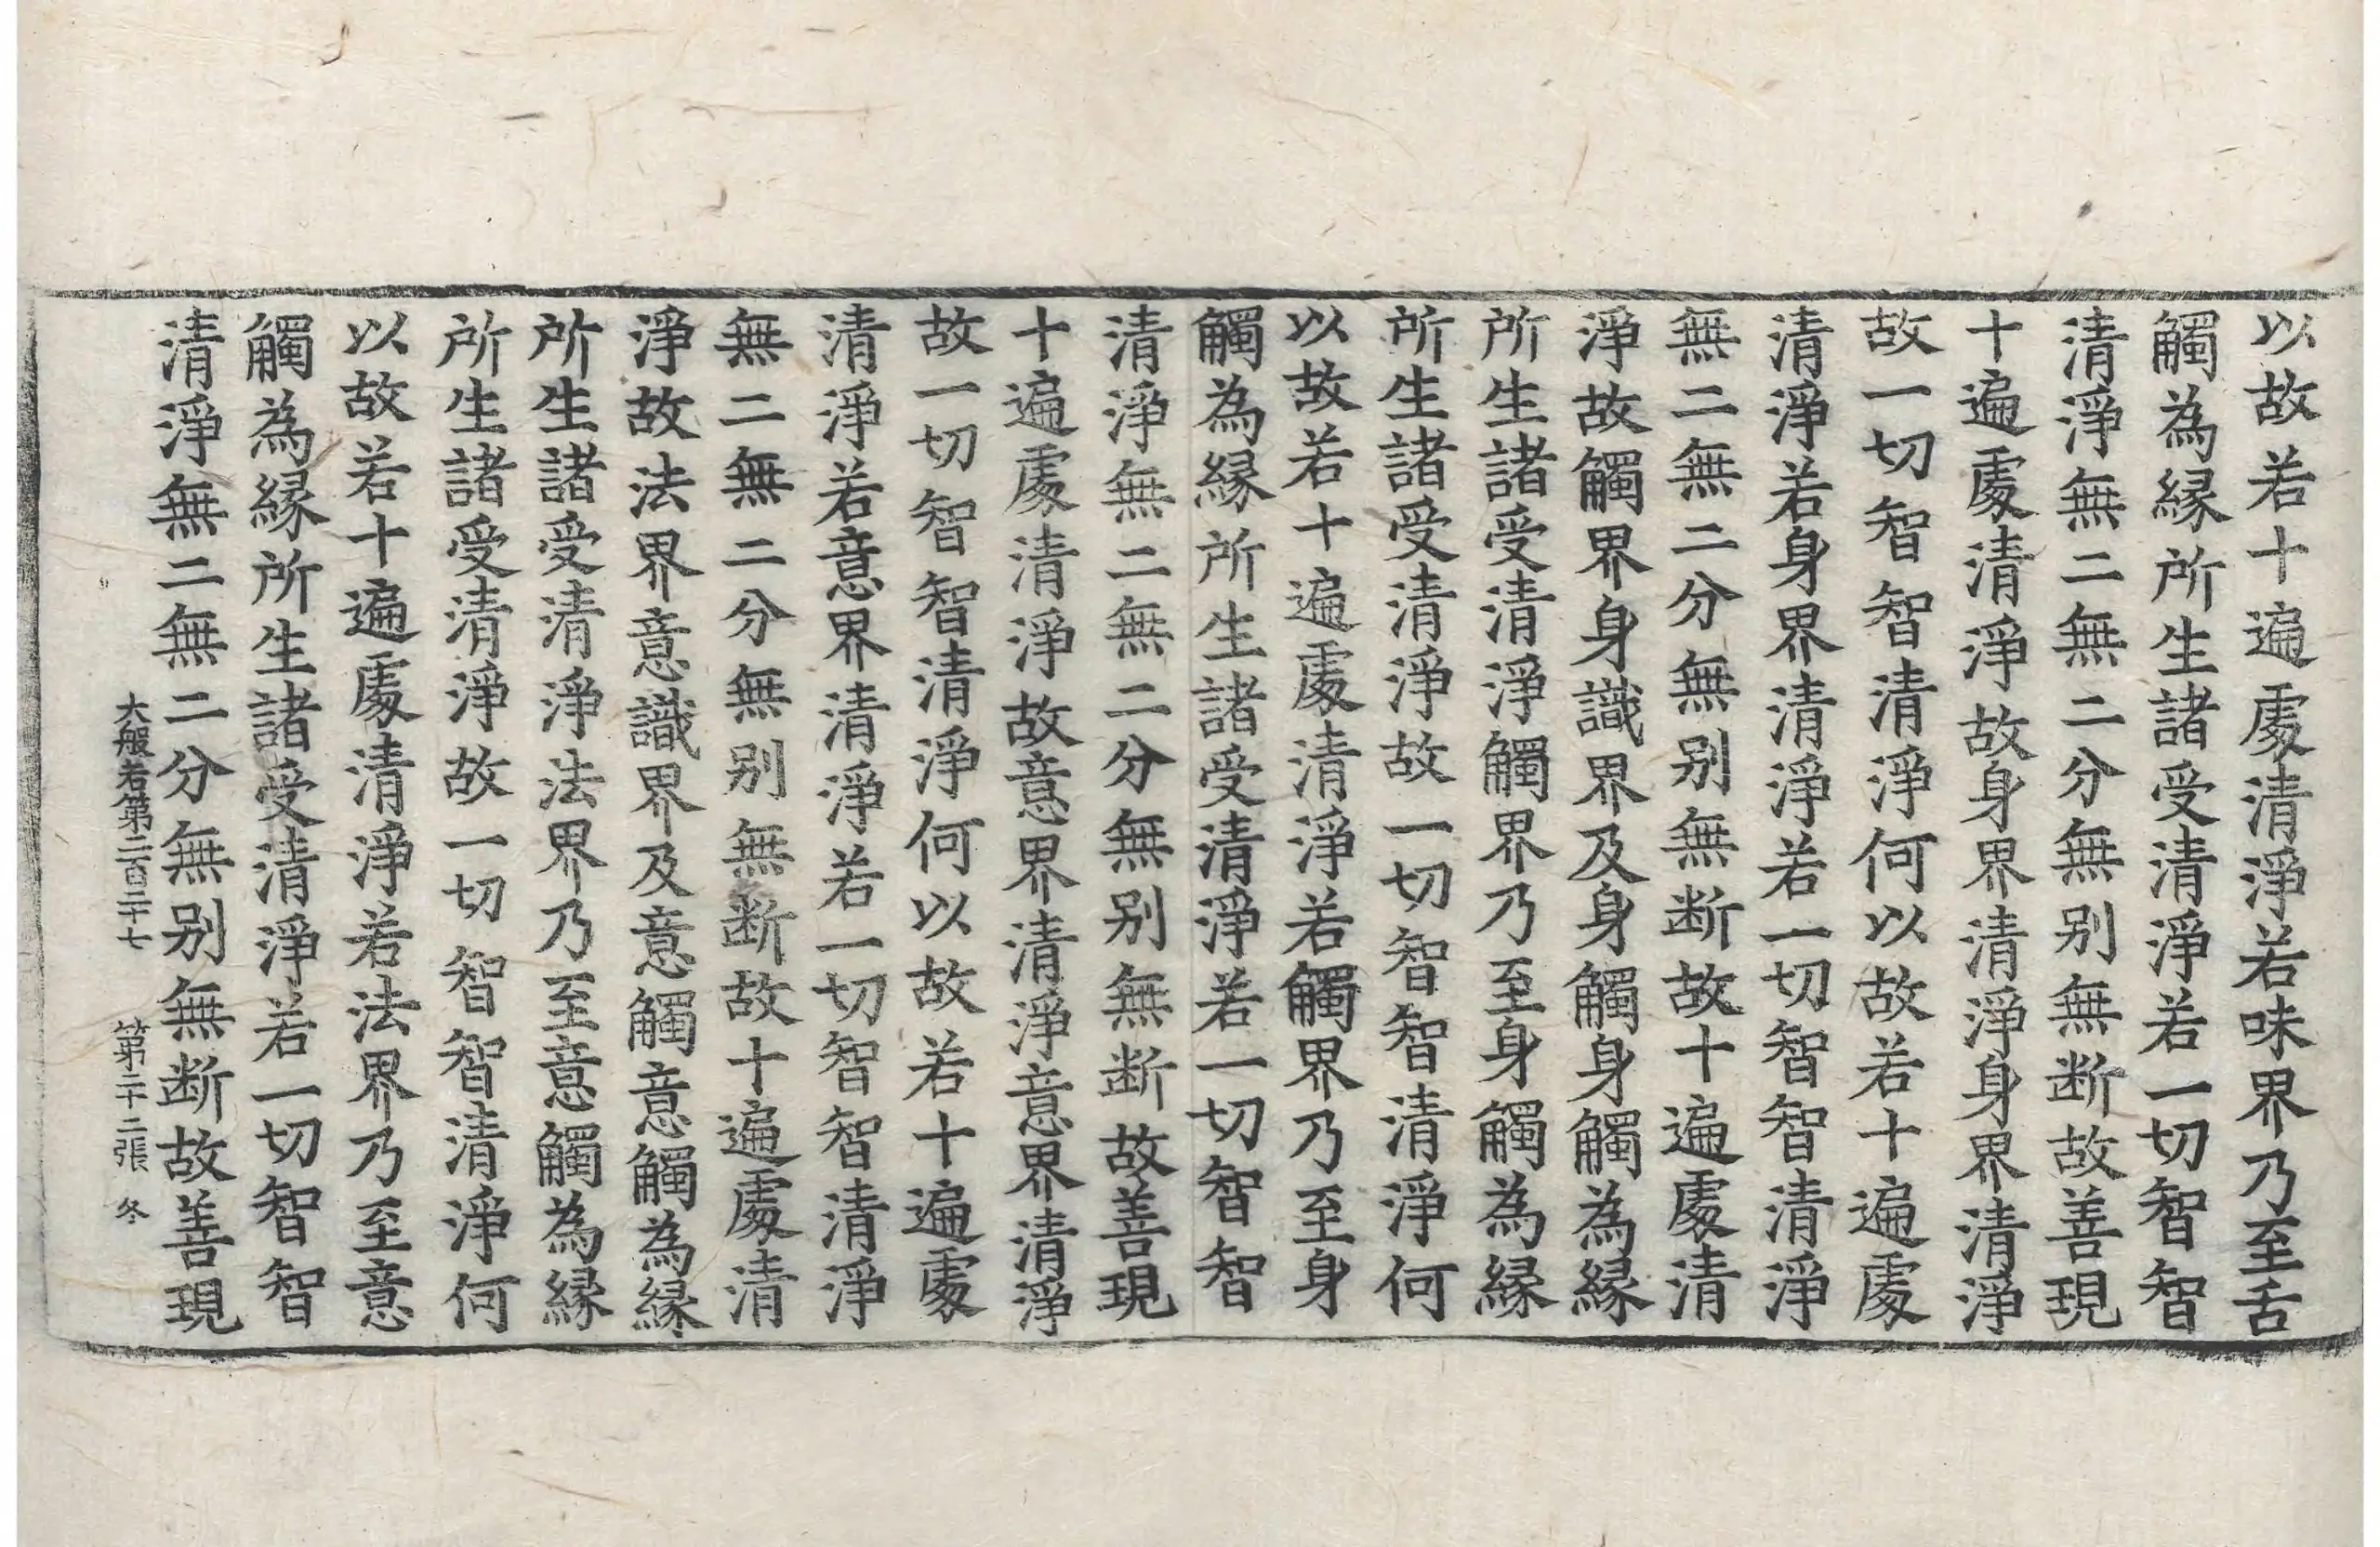 以故若十遍處清淨若味界乃至舌
觸為縁所生諸受清淨若一切智智
清淨無二無二分無别無断故善現
十遍處清淨故身界清淨身界清淨
故一切智智清淨何以故若十遍處
清淨若身界清淨若一切智智清淨
無二無二分無别無断故十遍處清
淨故觸界身識界及身觸身觸為縁
所生諸受清淨觸界乃至身觸為縁
所生諸受清淨故一切智智清淨何
以故若十遍處清淨若觸界乃至身
觸為縁所生諸受清淨若一切智智
清淨無二無二分無别無断故善現
十遍處清淨故意界清淨意界清淨
故一切智智清淨何以故若十遍處
清淨若意界清淨若一切智智清淨
無二無二分無别無断故十遍處清
淨故法界意識界及意觸意觸為縁
所生諸受清淨法界乃至意觸為縁
所生諸受清淨故一切智智清淨何
以故若十遍處清淨若法界乃至意
觸為縁所生諸受清淨若一切智智
清淨無二無二分無别無断故善現
大般若第二百二十七 第二十二張 冬